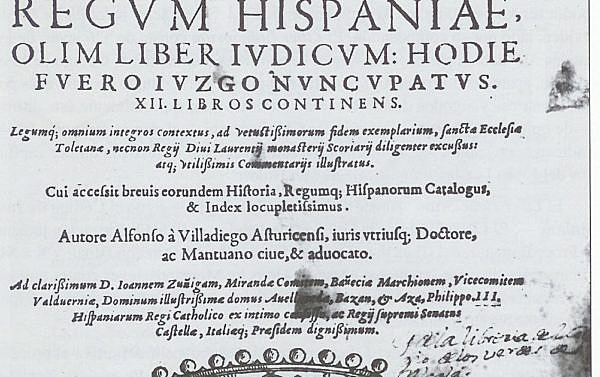 REGVM HISPANIAE,
OLIM LIBER IVDICVM: HODIE
FVERO IVZGO NVNCVPATVS.
XII. LIBROS CONTINENS.
Legumq; omnium integros contextus, ad vetustissimorum fidem exemplarium, sanctæ Ecclesiæ
Toletanæ, necnon Regij Diui Laurentij monasterij Scoriarij diligenter excussus:
atq; vtilissimis Commentarijs illustratus.
Cui accessit breuis eorundem Historia, Regumq; Hispanorum Catalogus,
& Index locupletissimus.
Autore Alfonso à Villadiego Asturicensi, iuris vtriusq; Doctore,
ac Mantuano ciue, & aduocato.
Ad clarissimum D. Ioannem Zuñigam, Mirandæ Comitem, Bañeciæ Marchionem, Vicecomitem
Valduerniæ, Dominum illustrissimæ domus Auellaneda, Bazan, & Aza, Philippo. III.
Hispaniarum Regi Catholico ex intimo ac Regij supremi Senatus
Castellæ, Italiæq; Præsidem dignissimum.
libreria de